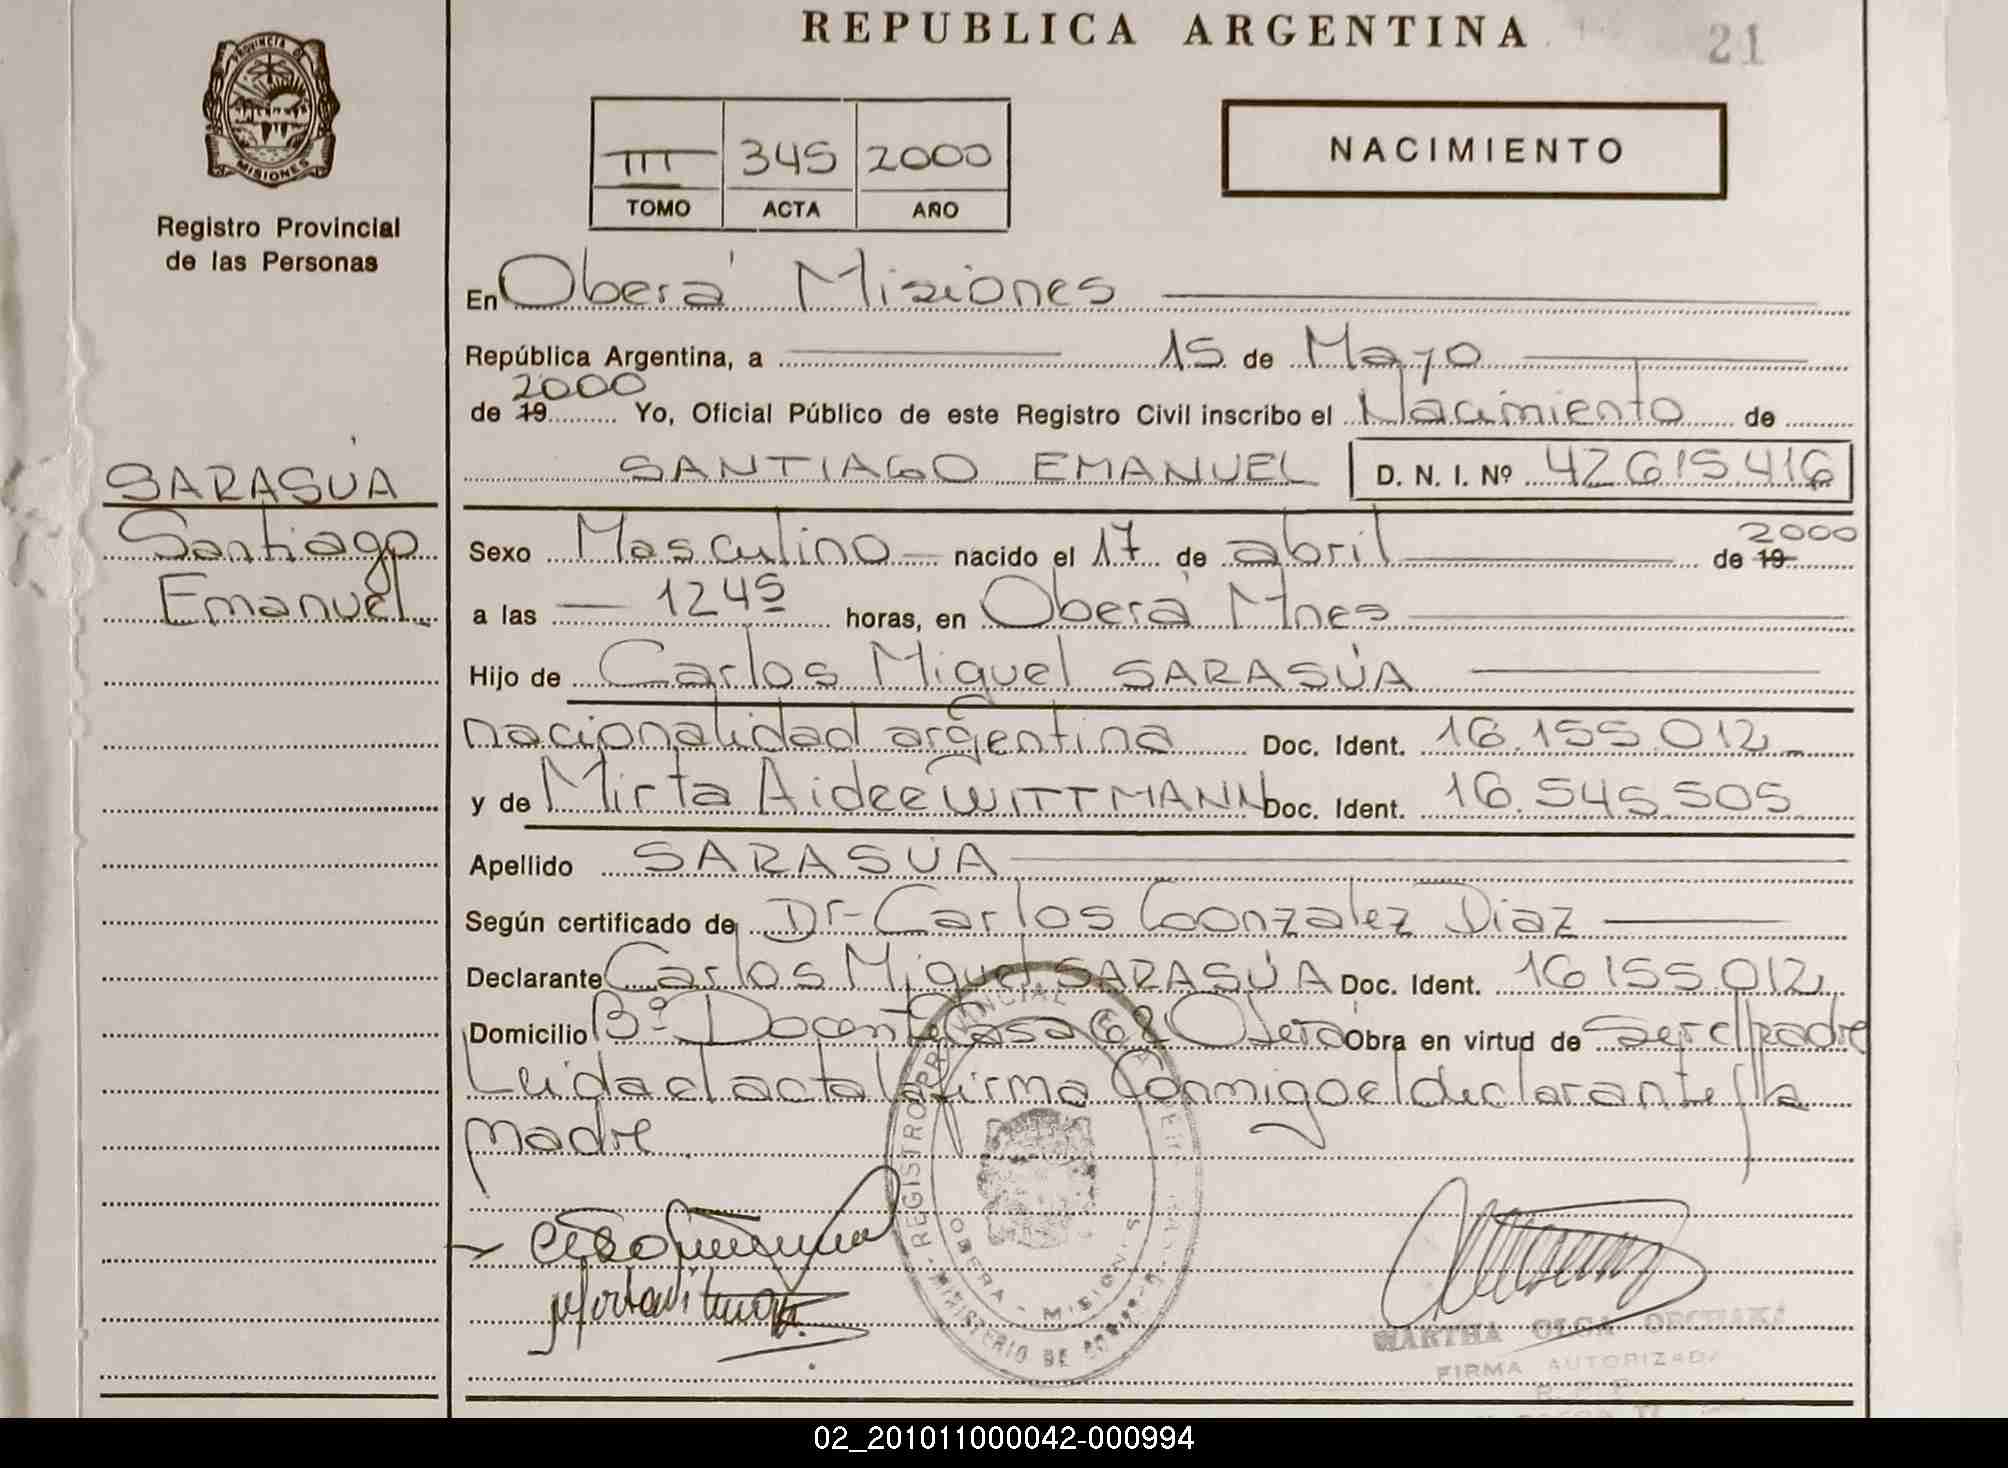 REPUBLICA ARGENTINA
21
PROVINCIA DE
MISIONES
Registro Provincial
de las Personas
III 345 2000
TOMO ACTA AÑO
NACIMIENTO
En Oberá Misiones
República Argentina, a 15 de Mayo
2000
de 19 Yo, Oficial Público de este Registro Civil inscribo el Nacimiento de
SANTIAGO EMANUEL D. N. I. Nº 42615416
SARASÚA
Santiago
Emanuel
2000
Sexo Masculino nacido el 17 de abril de 19
a las 1245 horas, en Oberá Mnes
Hijo de Carlos Miguel SARASÚA
nacionalidad argentina Doc. Ident. 16.155.012
y de Mirta Aidee WITTMANN Doc. Ident. 16.545.505
Apellido SARASÚA
Según certificado de Dr Carlos Gonzalez Diaz
Declarante Carlos Miguel SARASÚA Doc. Ident. 16155.012
Domicilio Bº Docente Casa 62 Oberá Obra en virtud de ser el padre
Leida el acta la firma Conmigo el declarante y la
madre
REGISTRO PROVINCIAL
OBERA - MISIONES
MINISTERIO DE
MARTHA OLGA
FIRMA AUTORIZADA
R. P. P.
02_201011000042-000994